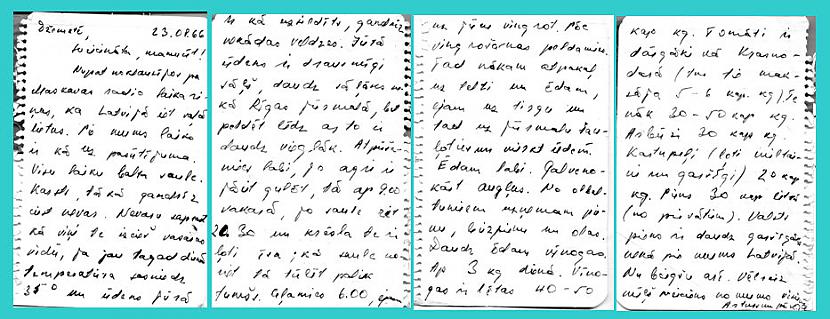 Dzemetē, 23.08.66
Sveicināta, mamiņ!
Nupat noklausījos pa
Maskavas radio laika zi-
ņas, ka Latvijā ļoti
lietus. Pie mums laiks
ir kā uz pasūtījuma.
Visu laiku balta saule.
Karsti, tā kā gandrīz
ciest nevar. Nevaru saprast
kā viņi te izcieš vasaras
vidu, ja jau tagad dienā
temperatūra sasniedz
35° un ūdens jūrā
ir kā uzsildīts, gandrīz
nekādas veldzes. Jūrā
ūdens ir drausmīgi
sāļš, daudz sāļāks ne-
kā Rīgas jūrmalā, bet
peldēt līdz ar to ir
daudz vieglāk. Atpūša-
mies labi, jo agri ir
jāiet gulēt, tā ap 9.00
vakarā, jo saule riet
30 un krēsla te ir
ļoti īsa; kā saule no-
riet tā tūlīt paliek
tumšs. Ceļamies 6.00, ejam
uz jūru vingrot. Pēc
vingrošanas peldamies.
Tad nākam atpakaļ
uz telti un ēdam,
ejam uz tirgu un
tad uz jūrmalu sau-
ļoties un mirkt ūdenī.
Ēdam labi. Galveno-
kārt augļus. No olbal-
tumiem uzņemam pie-
nu, biezpienu un olas.
Daudz ēdam vīnogas.
Ap 3 kg dienā. Vīno-
gas ir lētas 40-50
kap. kg. Tomāti ir
dārgāki kā Krasno-
darā (tur tie mak-
sāja 5-6 kap. kg) Te
nāk 30-50 kap kg.
Arbūzi 30 kap kg.
Kartupeļi (ļoti miltai-
ni un garšīgi) 20 kap
kg. Piens 30 kap litrā
(no privātiem). Valsts
piens ir daudz garšīgāks
nekā pie mums Latvijā.
Nu beigšu arī. Vēlreiz
mīļi no mums